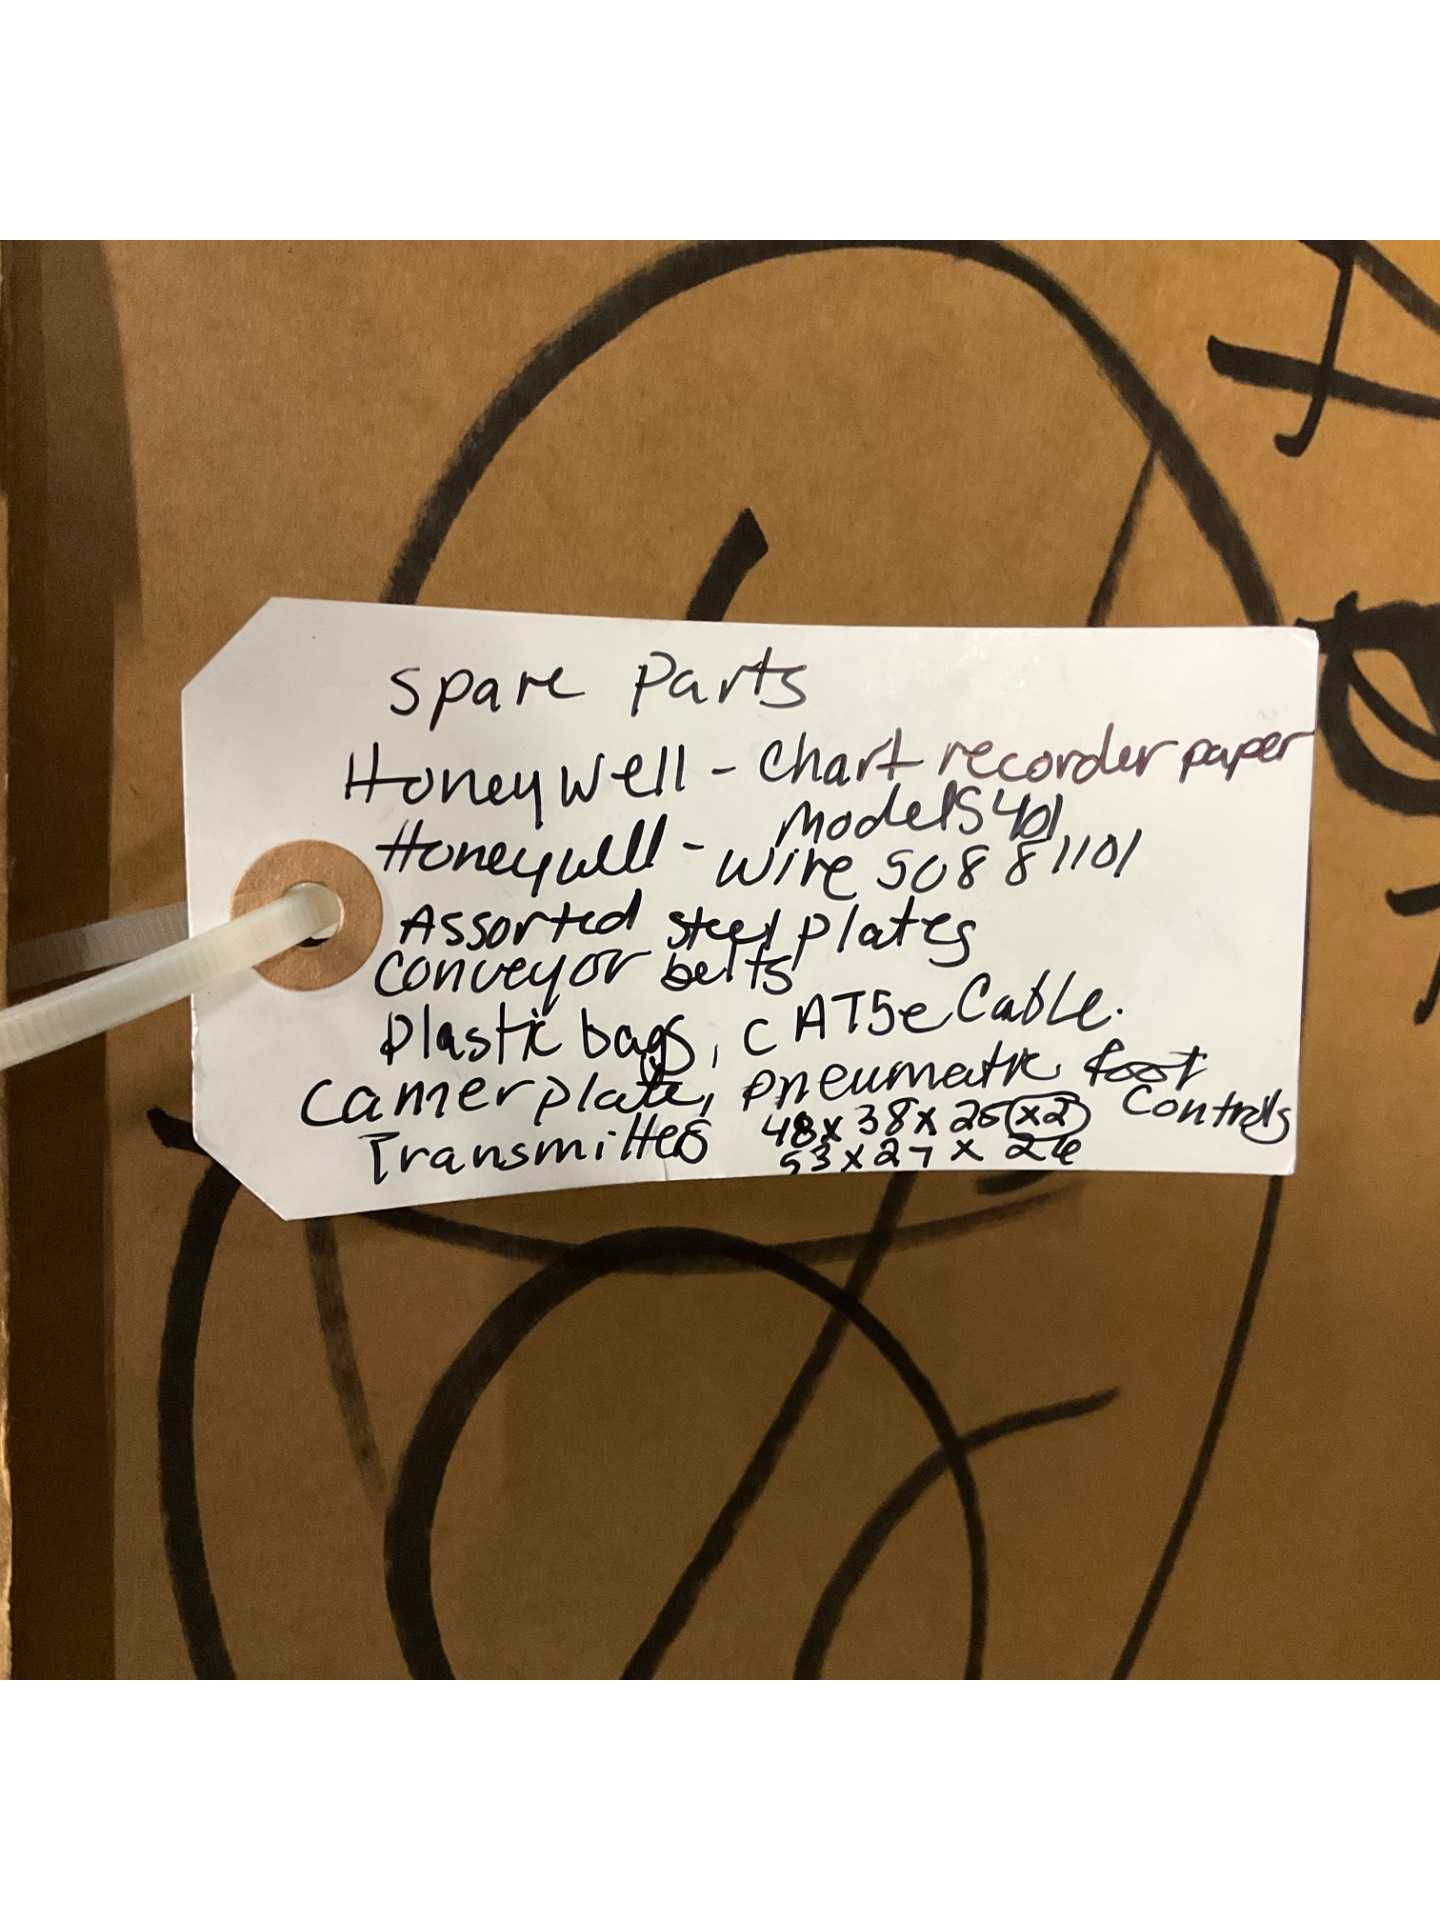 Spare Parts
Honeywell - Chart recorder paper
Models 401
Honeywell - Wire 50881101
Assorted steel plates
Conveyor belts
Plastic bags, CAT5e Cable.
Camer plate, pneumatic foot
Controls
Transmitters 48x38x26 (x2)
53x27x26